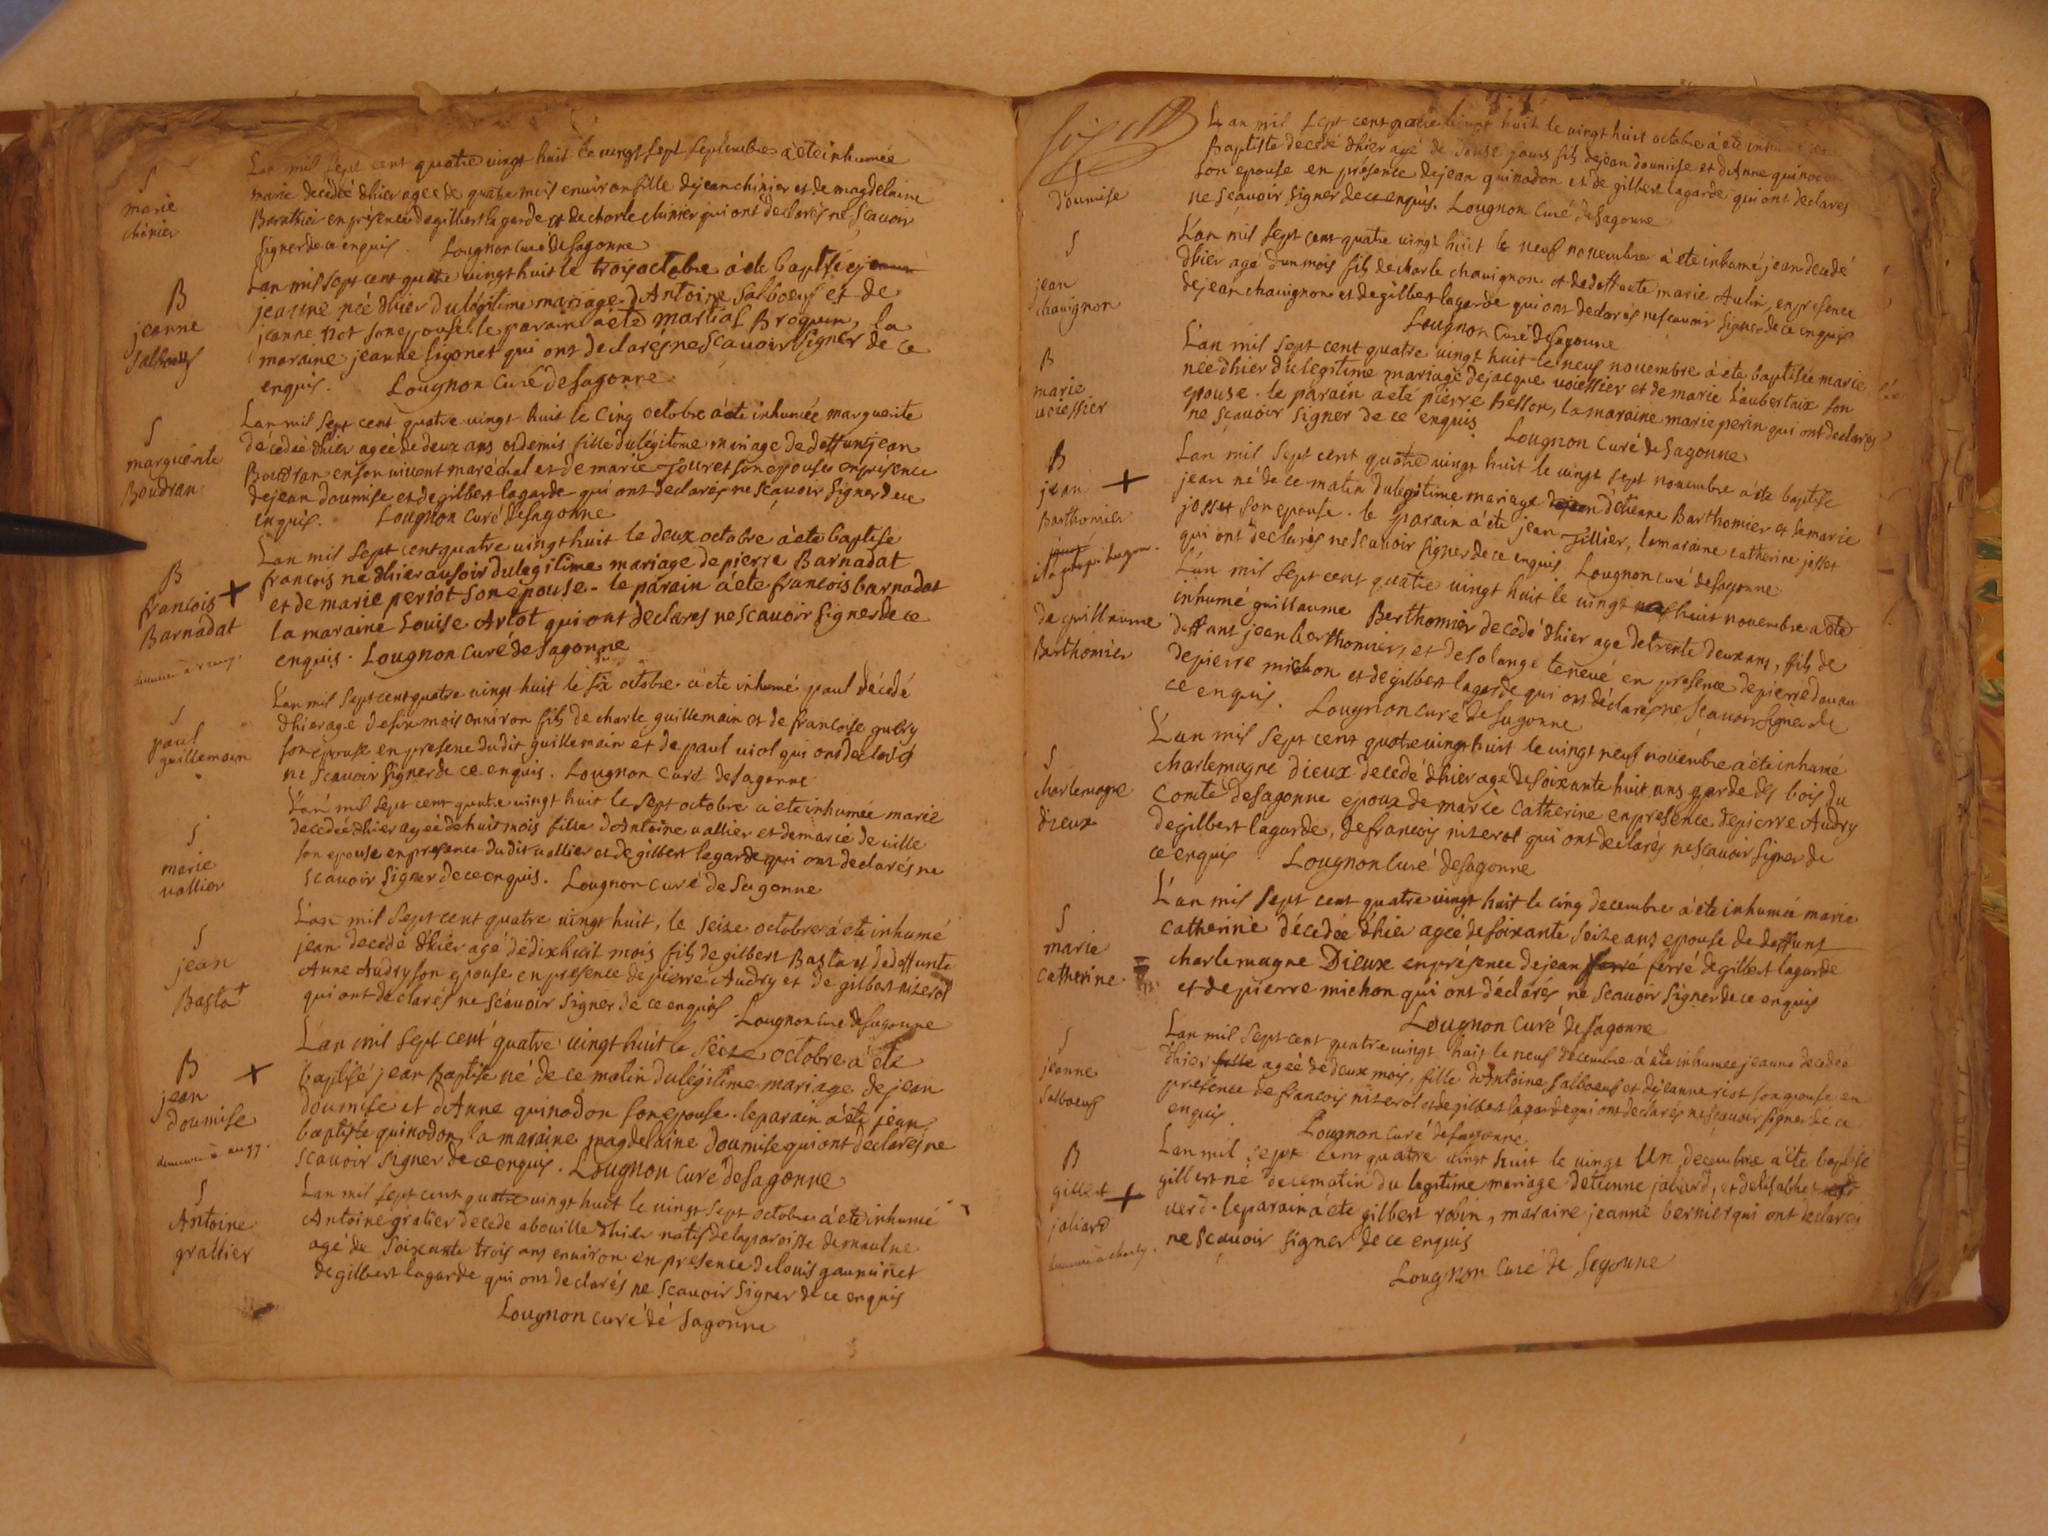 S
marie
chinier
L'an mil sept cent quatre vingt huit le vingt sept septembre à eté inhumée
marie decédée d'hier agee de quatre mois environ fille de jean chinier et de magdelaine
en présence de gilbert lagarde et de charle chinier qui ont declarés ne scavoir
signer de ce enquis. Lougnon Curé de Sagonne
B
jeanne
Salboeuf
L'an mil sept cent quatre vingt huit le trois octobre à eté baptisé
jeanne née d'hier du légitime mariage d'Antoine Salboeuf et de
jeanne riot son epouse. le parain à eté martial Broquin, la
maraine jeanne sigonet qui ont declarés ne scavoir signer de ce
enquis. Lougnon Curé de Sagonne
S
marguerite
Boudran
L'an mil sept cent quatre vingt huit le cinq octobre à eté inhumée marguerite
décédée d'hier agée de deux ans et demis fille du légitime mariage de deffunt jean
Boudran en son vivent maréchal et de marie jouret son epouse en présence
de jean doumise et de gilbert lagarde qui ont declarés ne scavoir signer de ce
enquis. Lougnon Curé de Sagonne
B
francois +
Barnadat
L'an mil sept cent quatre vingt huit le deux octobre à eté baptisé
francois né d'hier au soir du legitime mariage de pierre Barnadat
et de marie periot son epouse. le parain à eté francois barnadat
la maraine Louise Artot qui ont declares ne scavoir signer de ce
enquis. Lougnon Curé de Sagonne
S
paul
guillemain
L'an mil sept cent quatre vingt huit le six octobre à eté inhumé paul décédé
d'hier agé de six mois environ fils de charle guillemain et de francoise gubry
son epouse en presence du dit guillemain et de paul viol qui ont declarés
ne scavoir signer de ce enquis. Lougnon Curé de Sagonne
S
marie
vallier
L'an mil sept cent quatre vingt huit le sept octobre à eté inhumée marie
decedée d'hier agée de huit mois fille d'Antoine vallier et de marie de ville
son epouse en presence du dit vallier et de gilbert lagarde qui ont declarés ne
scavoir signer de ce enquis. Lougnon Curé de Sagonne
S
jean
Basta
L'an mil sept cent quatre vingt huit, le seize octobre à eté inhumé
jean decedé d'hier agé de dix huit mois fils de gilbert Basta et de deffunte
Anne Audry son epouse en presence de pierre Audry et de gilbert nizerol
qui ont declarés ne scavoir signer de ce enquis. Lougnon Curé de Sagonne
B +
jean
doumise
L'an mil sept cent quatre vingt huit le seize octobre à eté
baptisé jean Baptiste né de ce matin du legitime mariage de jean
doumise et d'Anne quinodon son epouse. le parain à eté jean
baptiste quinodon, la maraine magdelaine doumise qui ont declarés ne
scavoir signer de ce enquis. Lougnon Curé de Sagonne
S
Antoine
grattier
L'an mil sept cent quatre vingt huit le vingt sept octobre à eté inhumé
Antoine gratier decedé abouille d'hier natif de la paroisse de maulne
agé de soixante trois ans environ en presence de louis gauminet
de gilbert lagarde qui ont declarés ne scavoir signer de ce enquis
Lougnon curé de Sagonne
S
doumise
L'an mil sept cent quatre vingt huit le vingt huit octobre à eté
Baptiste decedé d'hier agé de douse jours fils de jean doumise et d'Anne quinodon
son epouse en présence de jean quinodon et de gilbert lagarde qui ont declares
ne scavoir signer de ce enquis. Lougnon Curé de Sagonne
S
jean
chauignon
L'an mil sept cent quatre vingt huit le neuf novembre à eté inhumé jean decedé
d'hier agé d'un mois fils de charle chauignon et de deffuncte marie Aulin, en presence
de jean chauignon et de gilbert lagarde qui ont declarés ne scavoir signer de ce enquis
Lougnon Curé de Sagonne
B
marie
voiessier
L'an mil sept cent quatre vingt huit le neuf novembre à eté baptisée marie
née d'hier du legitime mariage de jacque voiessier et de marie Laubertaix son
epouse. le parain à eté pierre besson, la maraine marie perin qui ont declarés
ne scavoir signer de ce enquis Lougnon Curé de Sagonne
B
jean +
Barthomier
L'an mil sept cent quatre vingt huit le vingt sept novembre à été baptisé
jean né de ce matin du legitime mariage d'etienne Barthomier et de marie
josset son epouse. le parain à eté jean jillier, la maraine catherine josset
qui ont declarés ne scavoir signer de ce enquis. Lougnon curé de Sagonne
de guillaume
Barthomier
L'an mil sept cent quatre vingt huit le vingt huit novembre a été
inhumé guillaume Berthomier decedé d'hier agé de trente deux ans, fils de
deffunt jean berthomier, et de solange teneué en presence de pierre dauau
de pierre michon et de gilbert lagarde qui ont déclarés ne scavoir signer de
ce enquis. Lougnon curé de Sagonne
S
charlemagne
dieux
L'an mil sept cent quatre vingt huit le vingt neuf novembre à été inhumé
charlemagne dieux decedé d'hier agé de soixante huit ans garde des bois du
Comté de Sagonne epoux de marie catherine en presence de pierre Audry
de gilbert lagarde, de francois nizerol qui ont declarés ne scavoir signer de
ce enquis Lougnon Curé de Sagonne
S
marie
catherine
L'an mil sept cent quatre vingt huit le cinq decembre à été inhumée marie
catherine décédée d'hier agée de soixante seize ans epouse de deffunt
charlemagne Dieux en présence de jean ferré de gilbert lagarde
et de pierre michon qui ont declarés ne scavoir signer de ce enquis
Lougnon Curé de Sagonne
S
jeanne
Salboeuf
L'an mil sept cent quatre vingt huit le neuf décembre à été inhumée jeanne decedée
d'hier agée de deux mois, fille d'Antoine Salboeuf et de jeanne riot son epouse en
presence de francois nizerol et de gilbert lagarde qui ont declarés ne scavoir signer de ce
enquis. Lougnon Curé de Sagonne
B
gilbert +
joliard
L'an mil sept cent quatre vingt huit le vingt Un decembre à eté baptisé
gilbert né de ce matin du legitime mariage d'etienne joliard, et d'elisabhet
verd. le parain à eté gilbert robin, maraine jeanne bernier qui ont declares
ne scavoir signer de ce enquis
Lougnon Curé de Sagonne